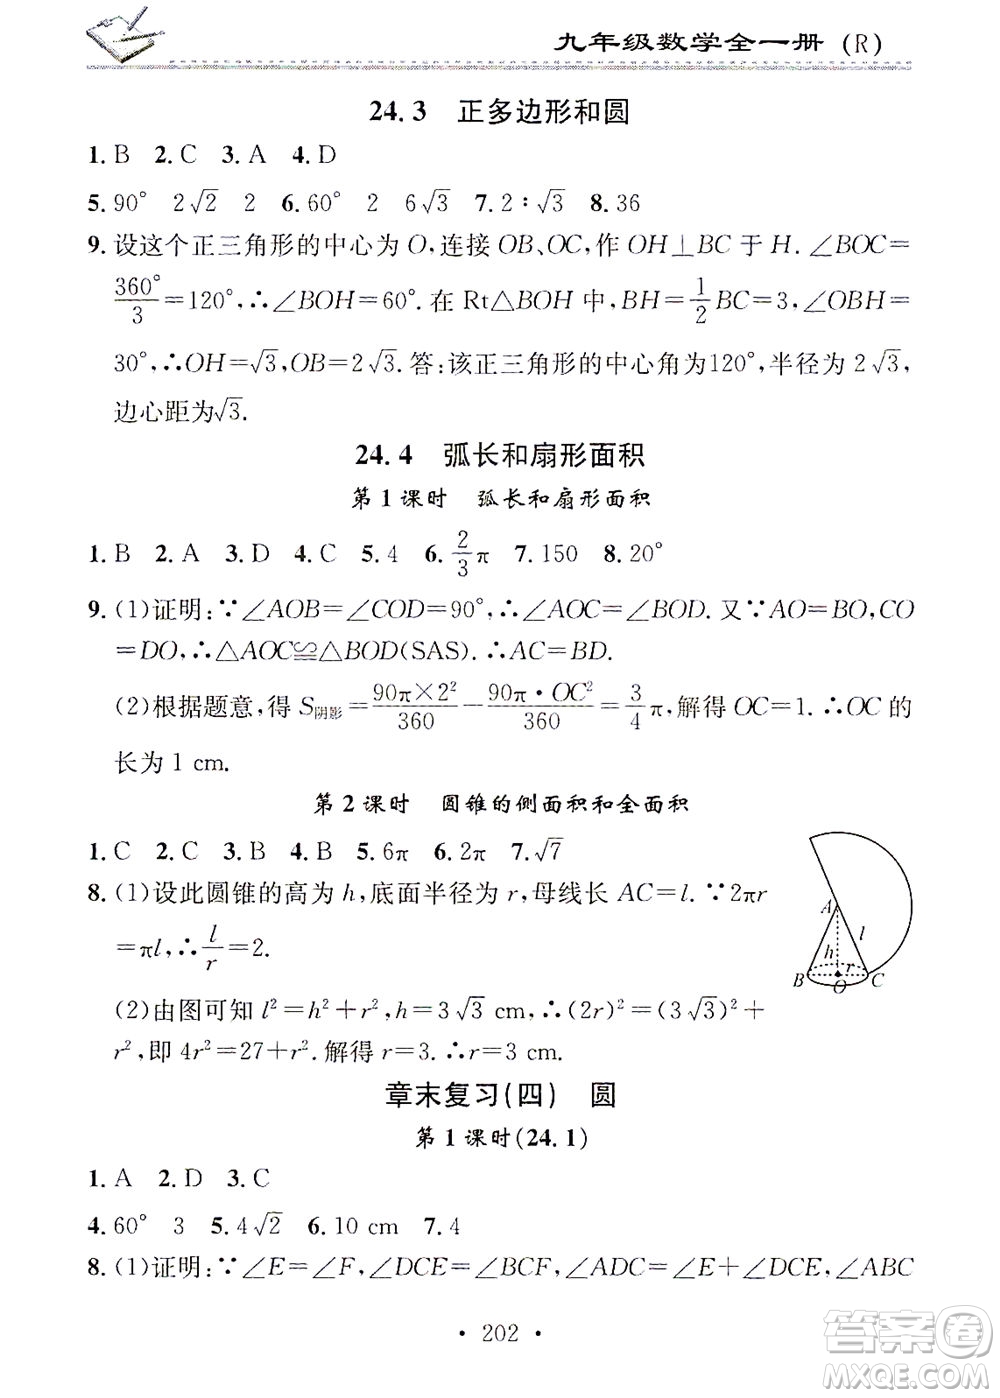 九年级数学全一册 (R)
24.3 正多边形和圆
1.B 2.C 3.A 4.D
5.90° 2√2 2 6.60° 2 6√3 7.2∶√3 8.36
9.设这个正三角形的中心为 O,连接 OB、OC,作 OH⊥BC 于 H.∠BOC=
360°/3=120°,∴∠BOH=60°.在 Rt△BOH 中,BH=1/2BC=3,∠OBH=
30°,∴OH=√3,OB=2√3.答:该正三角形的中心角为120°,半径为 2√3,
边心距为√3.
24.4 弧长和扇形面积
第1课时 弧长和扇形面积
1.B 2.A 3.D 4.C 5.4 6.2/3π 7.150 8.20°
9.(1)证明:∵∠AOB=∠COD=90°,∴∠AOC=∠BOD.又∵AO=BO,CO
=DO,∴△AOC≌△BOD(SAS).∴AC=BD.
(2)根据题意,得 S阴影=90π×2²/360-90π·OC²/360=3/4π,解得 OC=1.∴OC 的
长为 1 cm.
第2课时 圆锥的侧面积和全面积
1.C 2.C 3.B 4.B 5.6π 6.2π 7.√7
8.(1)设此圆锥的高为 h,底面半径为 r,母线长 AC=l.∵2πr
=πl,∴l/r=2.
(2)由图可知 l²=h²+r²,h=3√3 cm,∴(2r)²=(3√3)²+
r²,即 4r²=27+r².解得 r=3.∴r=3 cm.
A
l
h
r
B
O
C
章末复习(四) 圆
第1课时(24.1)
1.A 2.D 3.C
4.60° 3 5.4√2 6.10 cm 7.4
8.(1)证明:∵∠E=∠F,∠DCE=∠BCF,∠ADC=∠E+∠DCE,∠ABC
·202·
答案圈
MXQE.COM